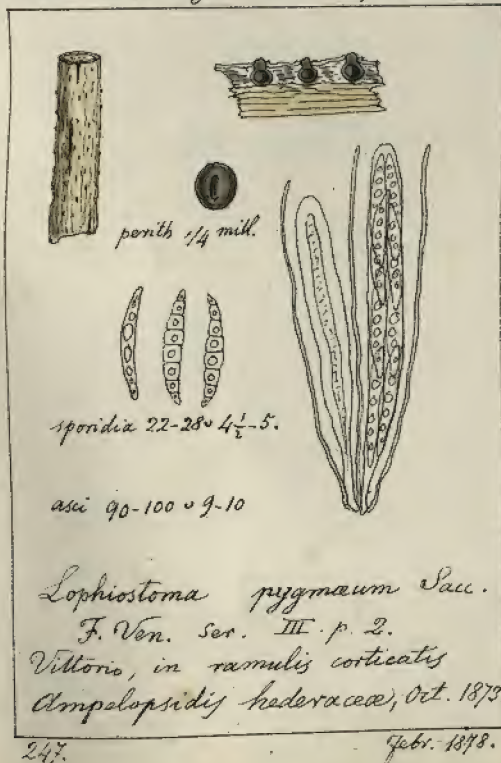 perith 1/4 mill.
sporidia 22-28 υ 4½-5.
asci 90-100 υ 9-10
Lophiostoma pygmæum Sacc.
F. Ven. Ser. III. p. 2.
Vittorio, in ramulis corticatis
Ampelopsidis hederaceæ, Oct. 1873
247.
febr. 1878.